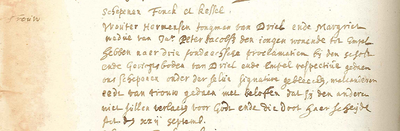 Trouw
Schepenen Fonck et Kessel
Wouter Hermessen jongman van Driel ende Margriet
wedue van Jan Peter Jacobs den jongen wonende tot Empel
hebben naer drie sondaechse proclamatien bij den schout
ende Gerechtsboden van Driel ende Empel respective gedaen
ons schepenen onder der selver signature gebleecken, malcanderen
eede van trouw gedaen met beloften dat sij den anderen
niet sullen verlaten voor Godt ende die doot haer scheijde
set den xxij septemb.